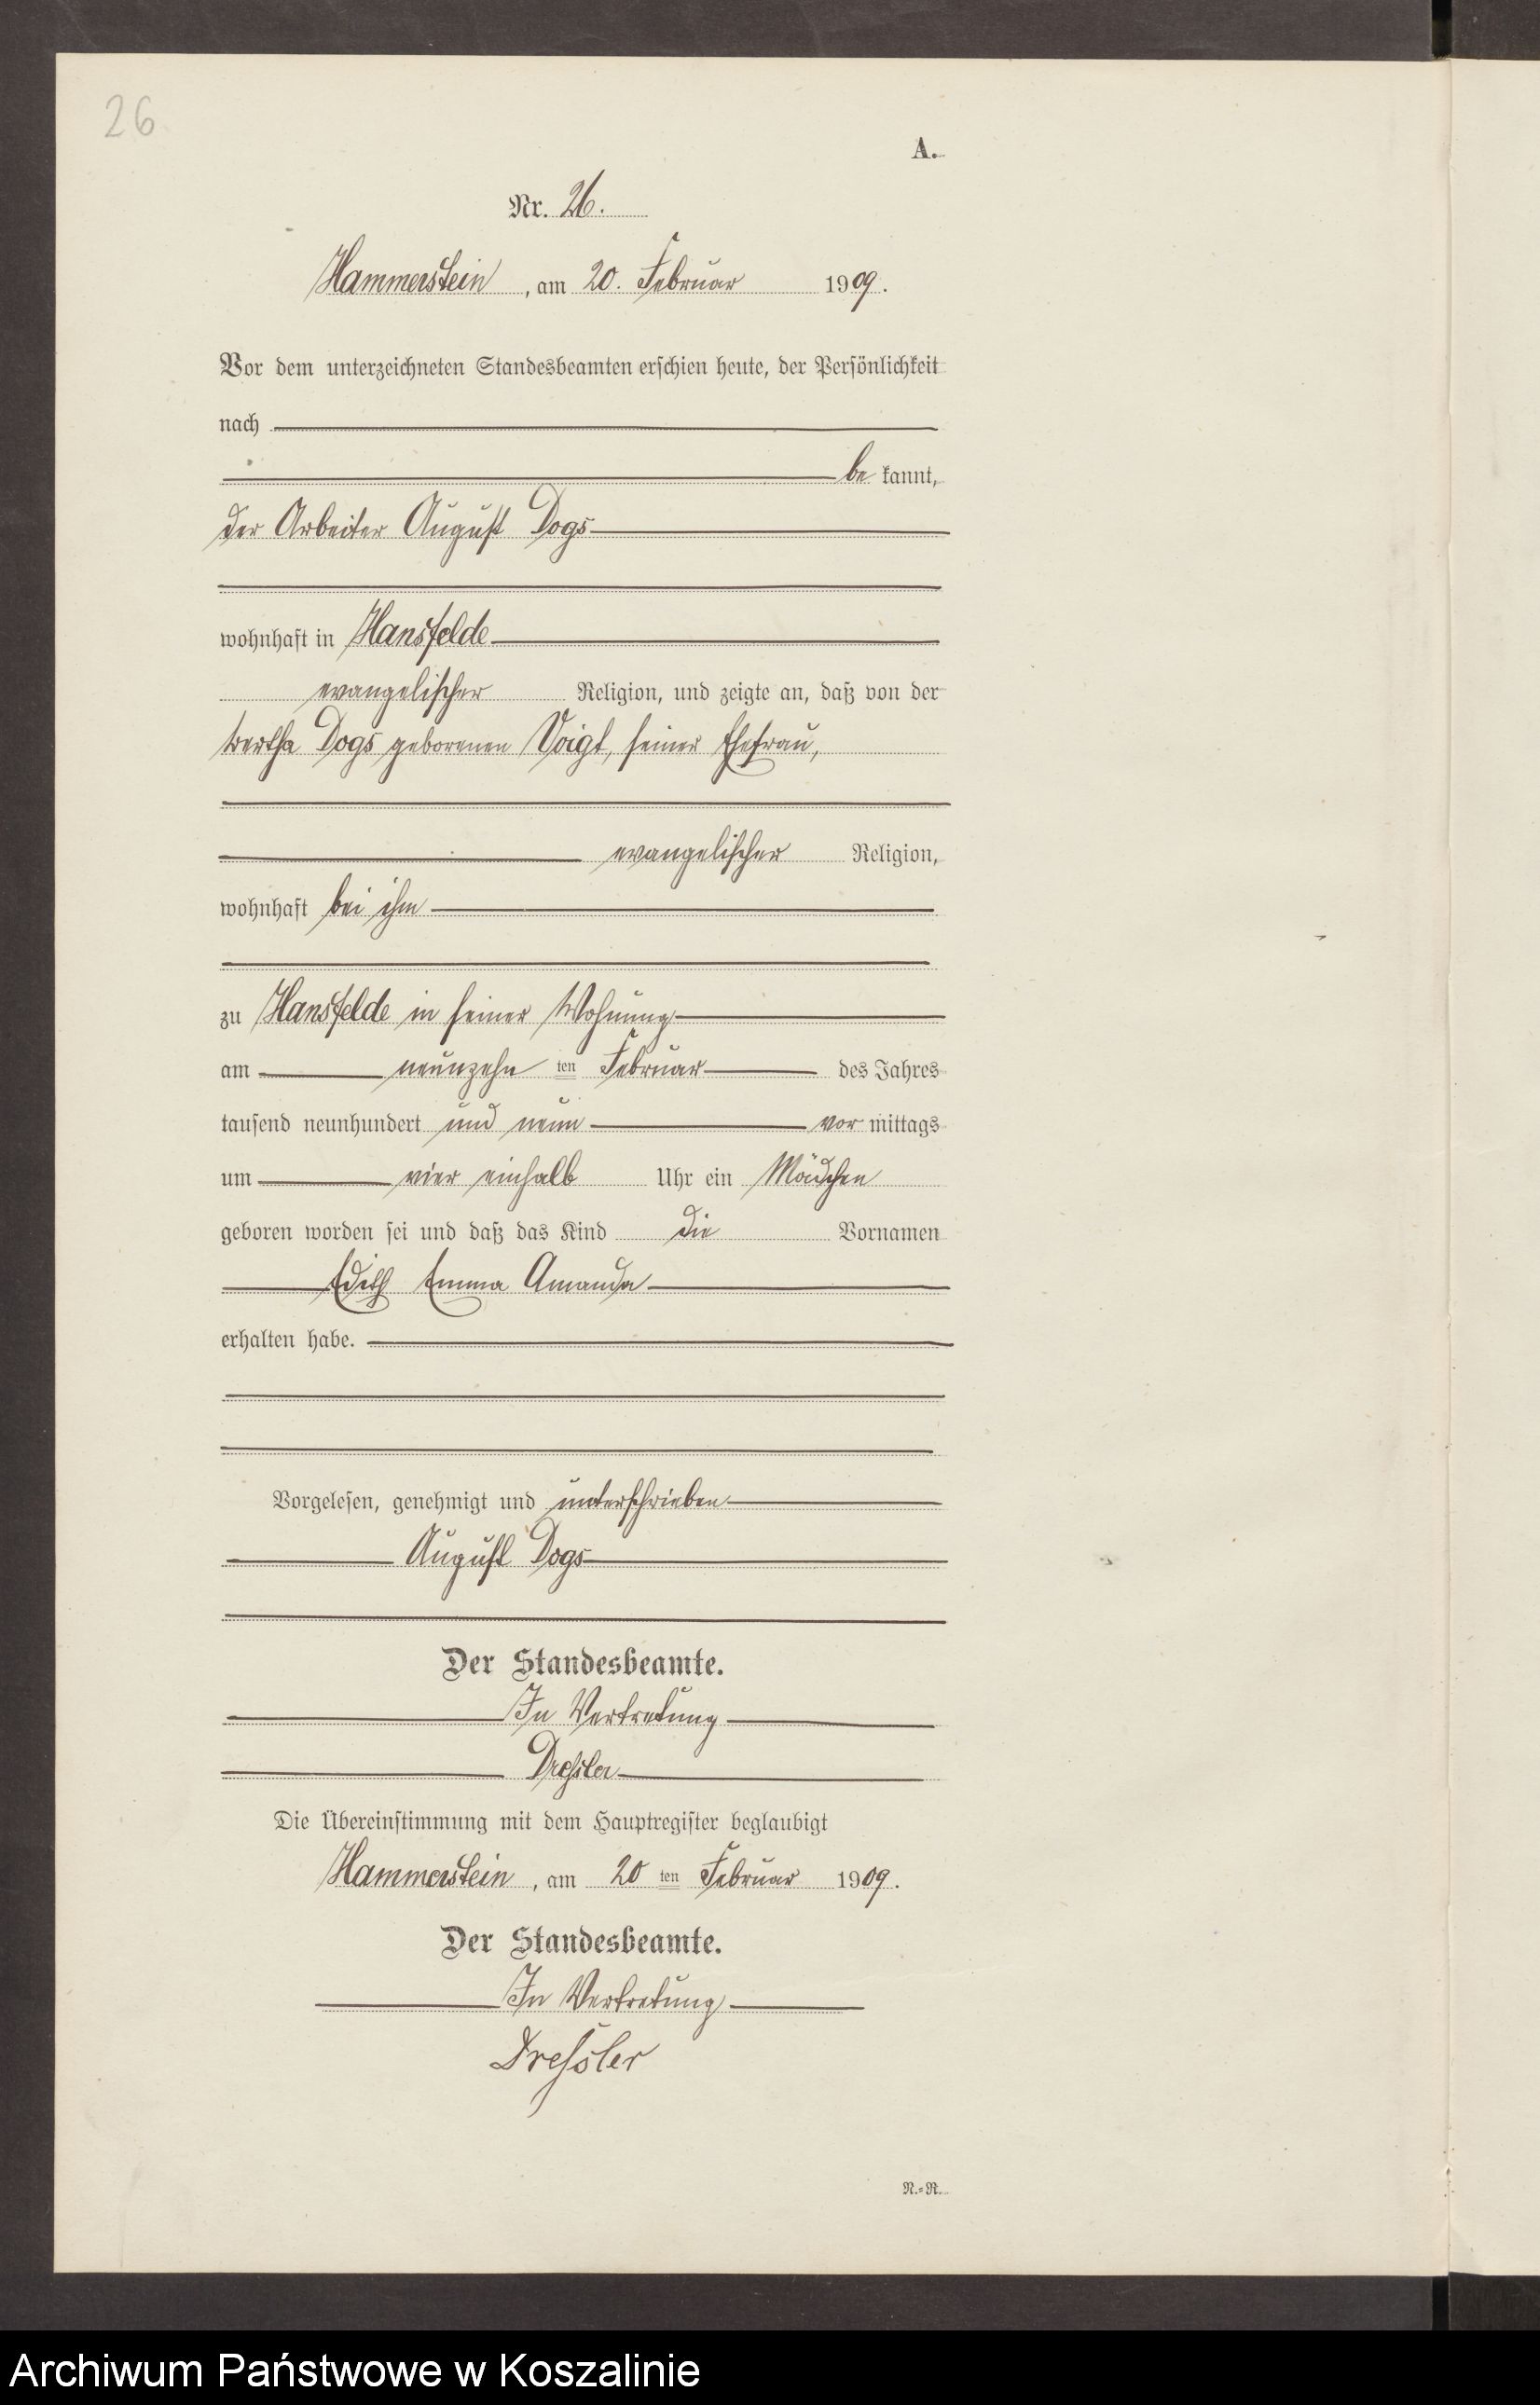 26
A.
Nr. 26.
Hammerstein, am 20. Februar 1909.
Vor dem unterzeichneten Standesbeamten erschien heute, der Persönlichkeit
nach
be kannt,
der Arbeiter August Dogs
wohnhaft in Hansfelde
evangelischer Religion, und zeigte an, daß von der
Bertha Dogs geborenen Voigt, seiner Ehefrau,
evangelischer Religion,
wohnhaft bei ihm
zu Hansfelde in seiner Wohnung
am neunzehn ten Februar des Jahres
tausend neunhundert und neun vor mittags
um vier einhalb Uhr ein Mädchen
geboren worden sei und daß das Kind die Vornamen
Edith Emma Amanda
erhalten habe.
Vorgelesen, genehmigt und unterschrieben
August Dogs
Der Standesbeamte.
In Vertretung
Dressler
Die Übereinstimmung mit dem Hauptregister beglaubigt
Hammerstein, am 20 ten Februar 1909.
Der Standesbeamte.
In Vertretung
Dressler
N.=R.
Archiwum Państwowe w Koszalinie